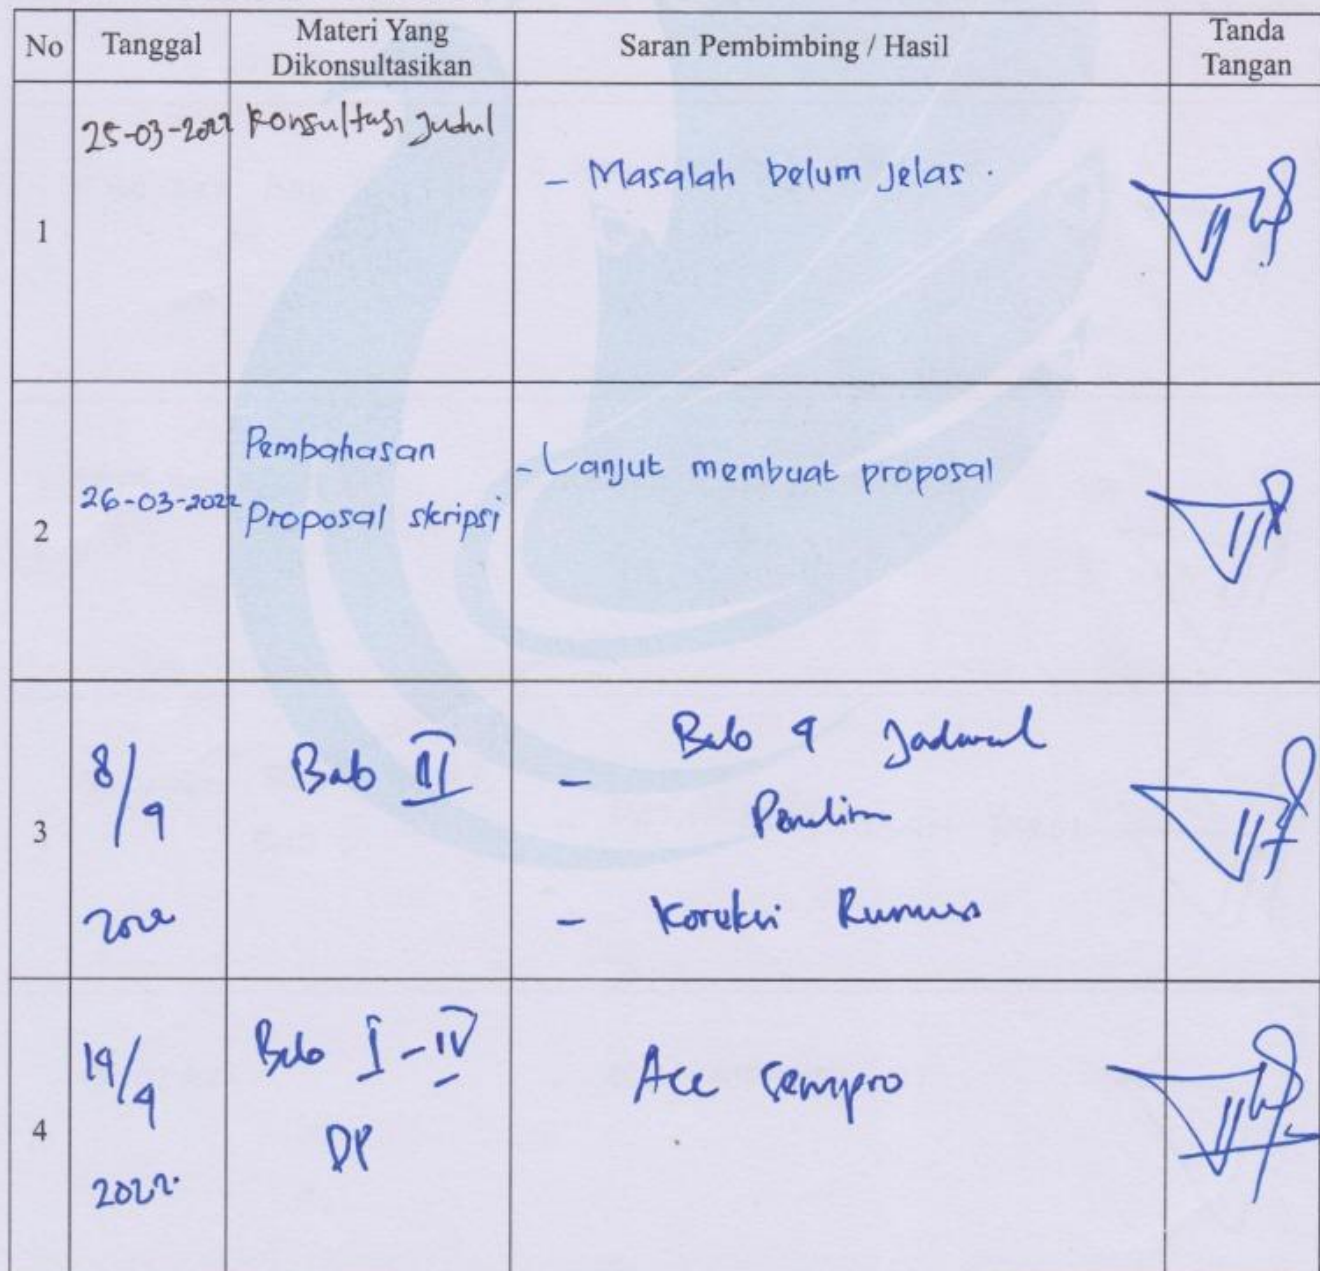 No
Tanggal
Materi Yang
Dikonsultasikan
Saran Pembimbing / Hasil
Tanda
Tangan
1
25-03-2022
Konsultasi Judul
- Masalah belum Jelas.
2
26-03-2022
Pembahasan
Proposal skripsi
- Lanjut membuat proposal
3
8/4
2022
Bab III
- Bab 4 Jadwal
- Koreksi Rumus
4
14/4
2022
Bab I - IV
DP
Acc Sempro